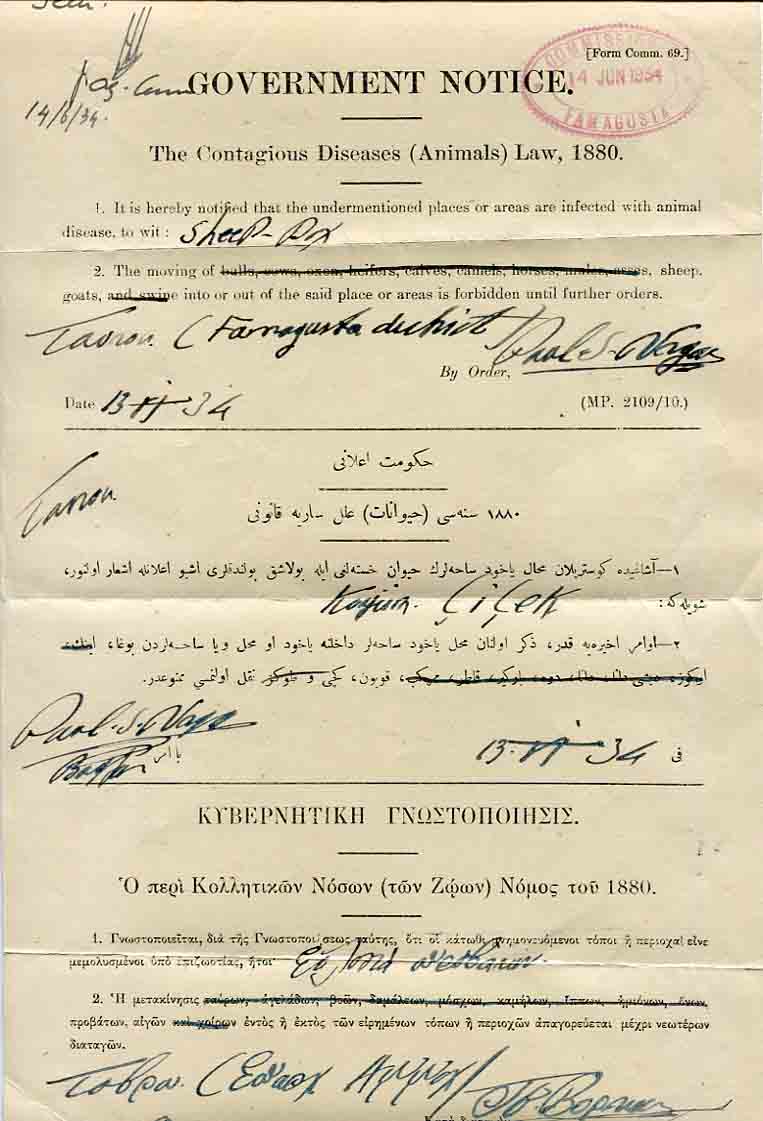 [Form Comm. 69.]
COMMISSIONER
14 JUN 1934
FAMAGUSTA
14/6/34.
GOVERNMENT NOTICE.
The Contagious Diseases (Animals) Law, 1880.
1. It is hereby notified that the undermentioned places or areas are infected with animal
disease, to wit : Sheep-Pox
2. The moving of bulls, cows, oxen, heifers, calves, camels, horses, mules, asses, sheep,
goats, and swine into or out of the said place or areas is forbidden until further orders.
(Famagusta district
By Order,
Date 13-VI-34
(MP. 2109/10.)
حكومت اعلانی
١٨٨٠ سنه‌سی (حیوانات) علل ساریه قانونی
١—آشاغیده کوستریلان محال یاخود ساحه‌لرك حیوان خسته‌لغی ایله بولاشق بولندقلری اشبو اعلانله اشعار اولنور،
شویله که: Çiçek
٢—اوامر اخیره‌یه قدر، ذکر اولنان محل یاخود ساحه‌لر داخلنه یاخود او محل ویا ساحه‌لردن بوغا، اینك،
قویون، کچی و طوکوز نقل اولنمسی ممنوعدر.
با امر
فی 13-VI-34
ΚΥΒΕΡΝΗΤΙΚΗ ΓΝΩΣΤΟΠΟΙΗΣΙΣ.
Ὁ περὶ Κολλητικῶν Νόσων (τῶν Ζῴων) Νόμος τοῦ 1880.
1. Γνωστοποιεῖται, διὰ τῆς Γνωστοποιήσεως ταύτης, ὅτι οἱ κάτωθι μνημονευόμενοι τόποι ἢ περιοχαὶ εἶνε
μεμολυσμένοι ὑπὸ ἐπιζωοτίας, ἤτοι
2. Ἡ μετακίνησις ταύρων, ἀγελάδων, βοῶν, δαμάλεων, μόσχων, καμήλων, ἵππων, ἡμιόνων, ὄνων,
προβάτων, αἰγῶν καὶ χοίρων ἐντὸς ἢ ἐκτὸς τῶν εἰρημένων τόπων ἢ περιοχῶν ἀπαγορεύεται μέχρι νεωτέρων
διαταγῶν.